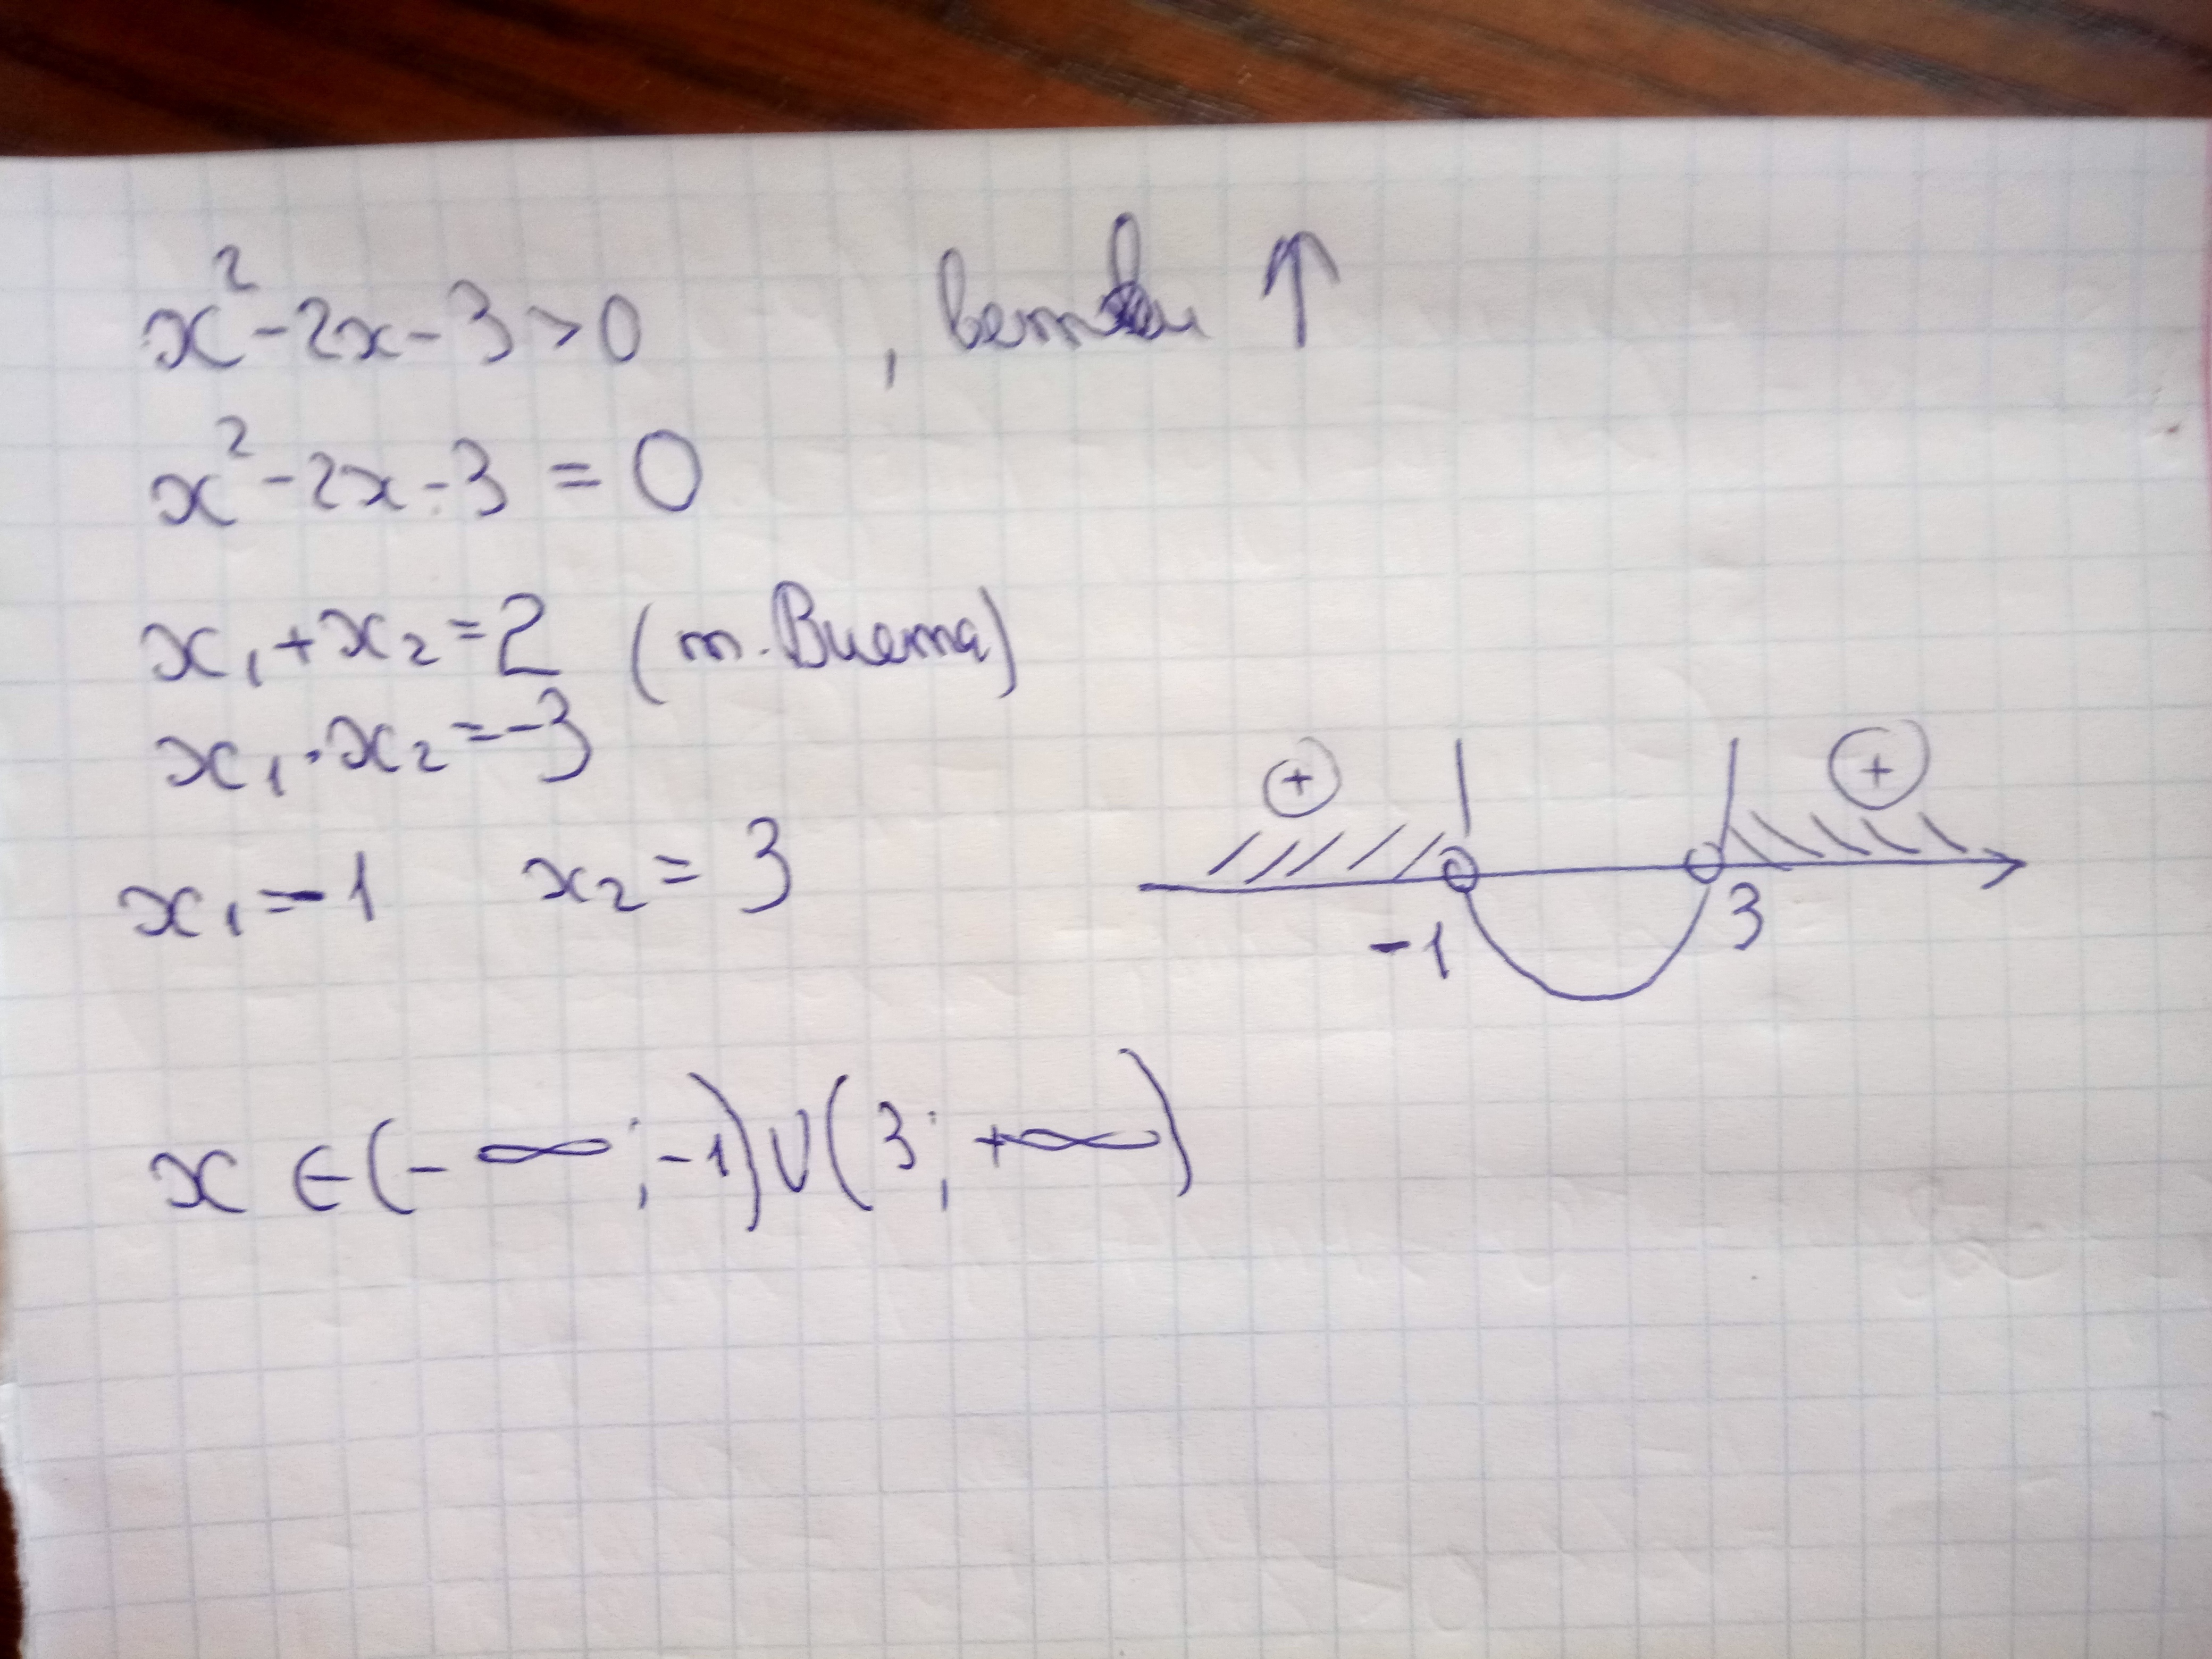 x² - 2x - 3 > 0 , ветви ↑
x² - 2x - 3 = 0
x₁ + x₂ = 2 (т. Виета)
x₁ · x₂ = -3
x₁ = -1 x₂ = 3
+ +
-1 3
x ∈ (-∞; -1) ∪ (3; +∞)